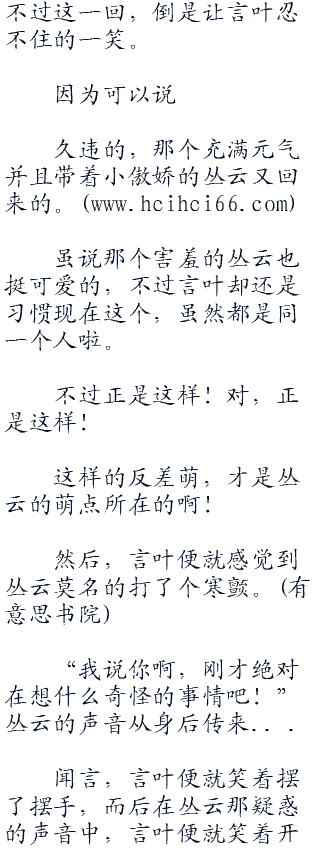 不过这一回，倒是让言叶忍
不住的一笑。
因为可以说
久违的，那个充满元气
并且带着小傲娇的丛云又回
来的。(www.hcihci66.com)
虽说那个害羞的丛云也
挺可爱的，不过言叶却还是
习惯现在这个，虽然都是同
一个人啦。
不过正是这样！对，正
是这样！
这样的反差萌，才是丛
云的萌点所在的啊！
然后，言叶便就感觉到
丛云莫名的打了个寒颤。(有
意思书院)
“我说你啊，刚才绝对
在想什么奇怪的事情吧！”
丛云的声音从身后传来...
闻言，言叶便就笑着摆
了摆手，而后在丛云那疑惑
的声音中，言叶便就笑着开